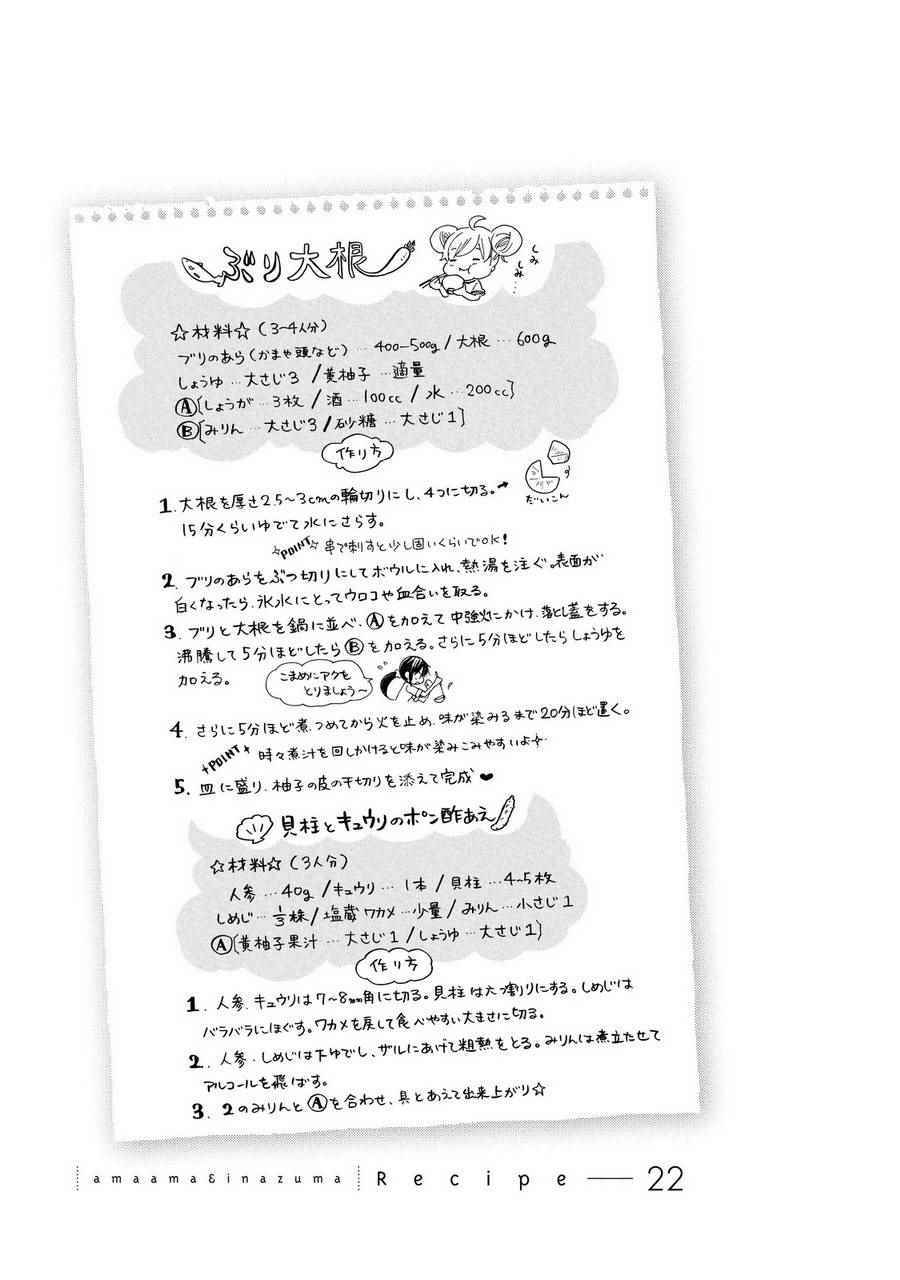 ぶり大根
しみ
しみ…
☆材料☆(3~4人分)
ブリのあら(かまや頭など)… 400-500g/大根 … 600g
しょうゆ…大さじ3 /黄柚子…適量
Ⓐ[しょうが…3枚/酒…100cc/水…200cc]
Ⓑ[みりん…大さじ3/砂糖…大さじ1]
作り方
1.大根を厚さ2.5~3cmの輪切りにし、4つに切る。→
だいこん
15分くらいゆでて水にさらす。
POINT 串で刺すと少し固いくらいでOK!
2. ブリのあらをぶつ切りにしてボウルに入れ、熱湯を注ぐ。表面が
白くなったら、氷水にとってウロコや血合いを取る。
3. ブリと大根を鍋に並べ、Ⓐを加えて中強火にかけ、落とし蓋をする。
沸騰して5分ほどしたらⒷを加える。さらに5分ほどしたらしょうゆを
加える。
こまめにアクを
とりましょう~
4. さらに5分ほど煮つめてから火を止め、味が染みるまで20分ほど置く。
POINT 時々煮汁を回しかけると味が染みこみやすいよ
5. 皿に盛り、柚子の皮の千切りを添えて完成♥
貝柱とキュウリのポン酢あえ
☆材料☆(3人分)
人参…40g/キュウリ…1本/貝柱…4~5枚
しめじ…⅓株/塩蔵ワカメ…少量/みりん…小さじ1
Ⓐ[黄柚子果汁…大さじ1/しょうゆ…大さじ1]
作り方
1. 人参、キュウリは7~8mm角に切る。貝柱は六つ割りにする。しめじは
バラバラにほぐす。ワカメを戻して食べやすい大きさに切る。
2. 人参・しめじは下ゆでし、ザルにあげて粗熱をとる。みりんは煮立たせて
アルコールを飛ばす。
3. 2のみりんとⒶを合わせ、具とあえて出来上がり☆
amaama&inazuma Recipe — 22